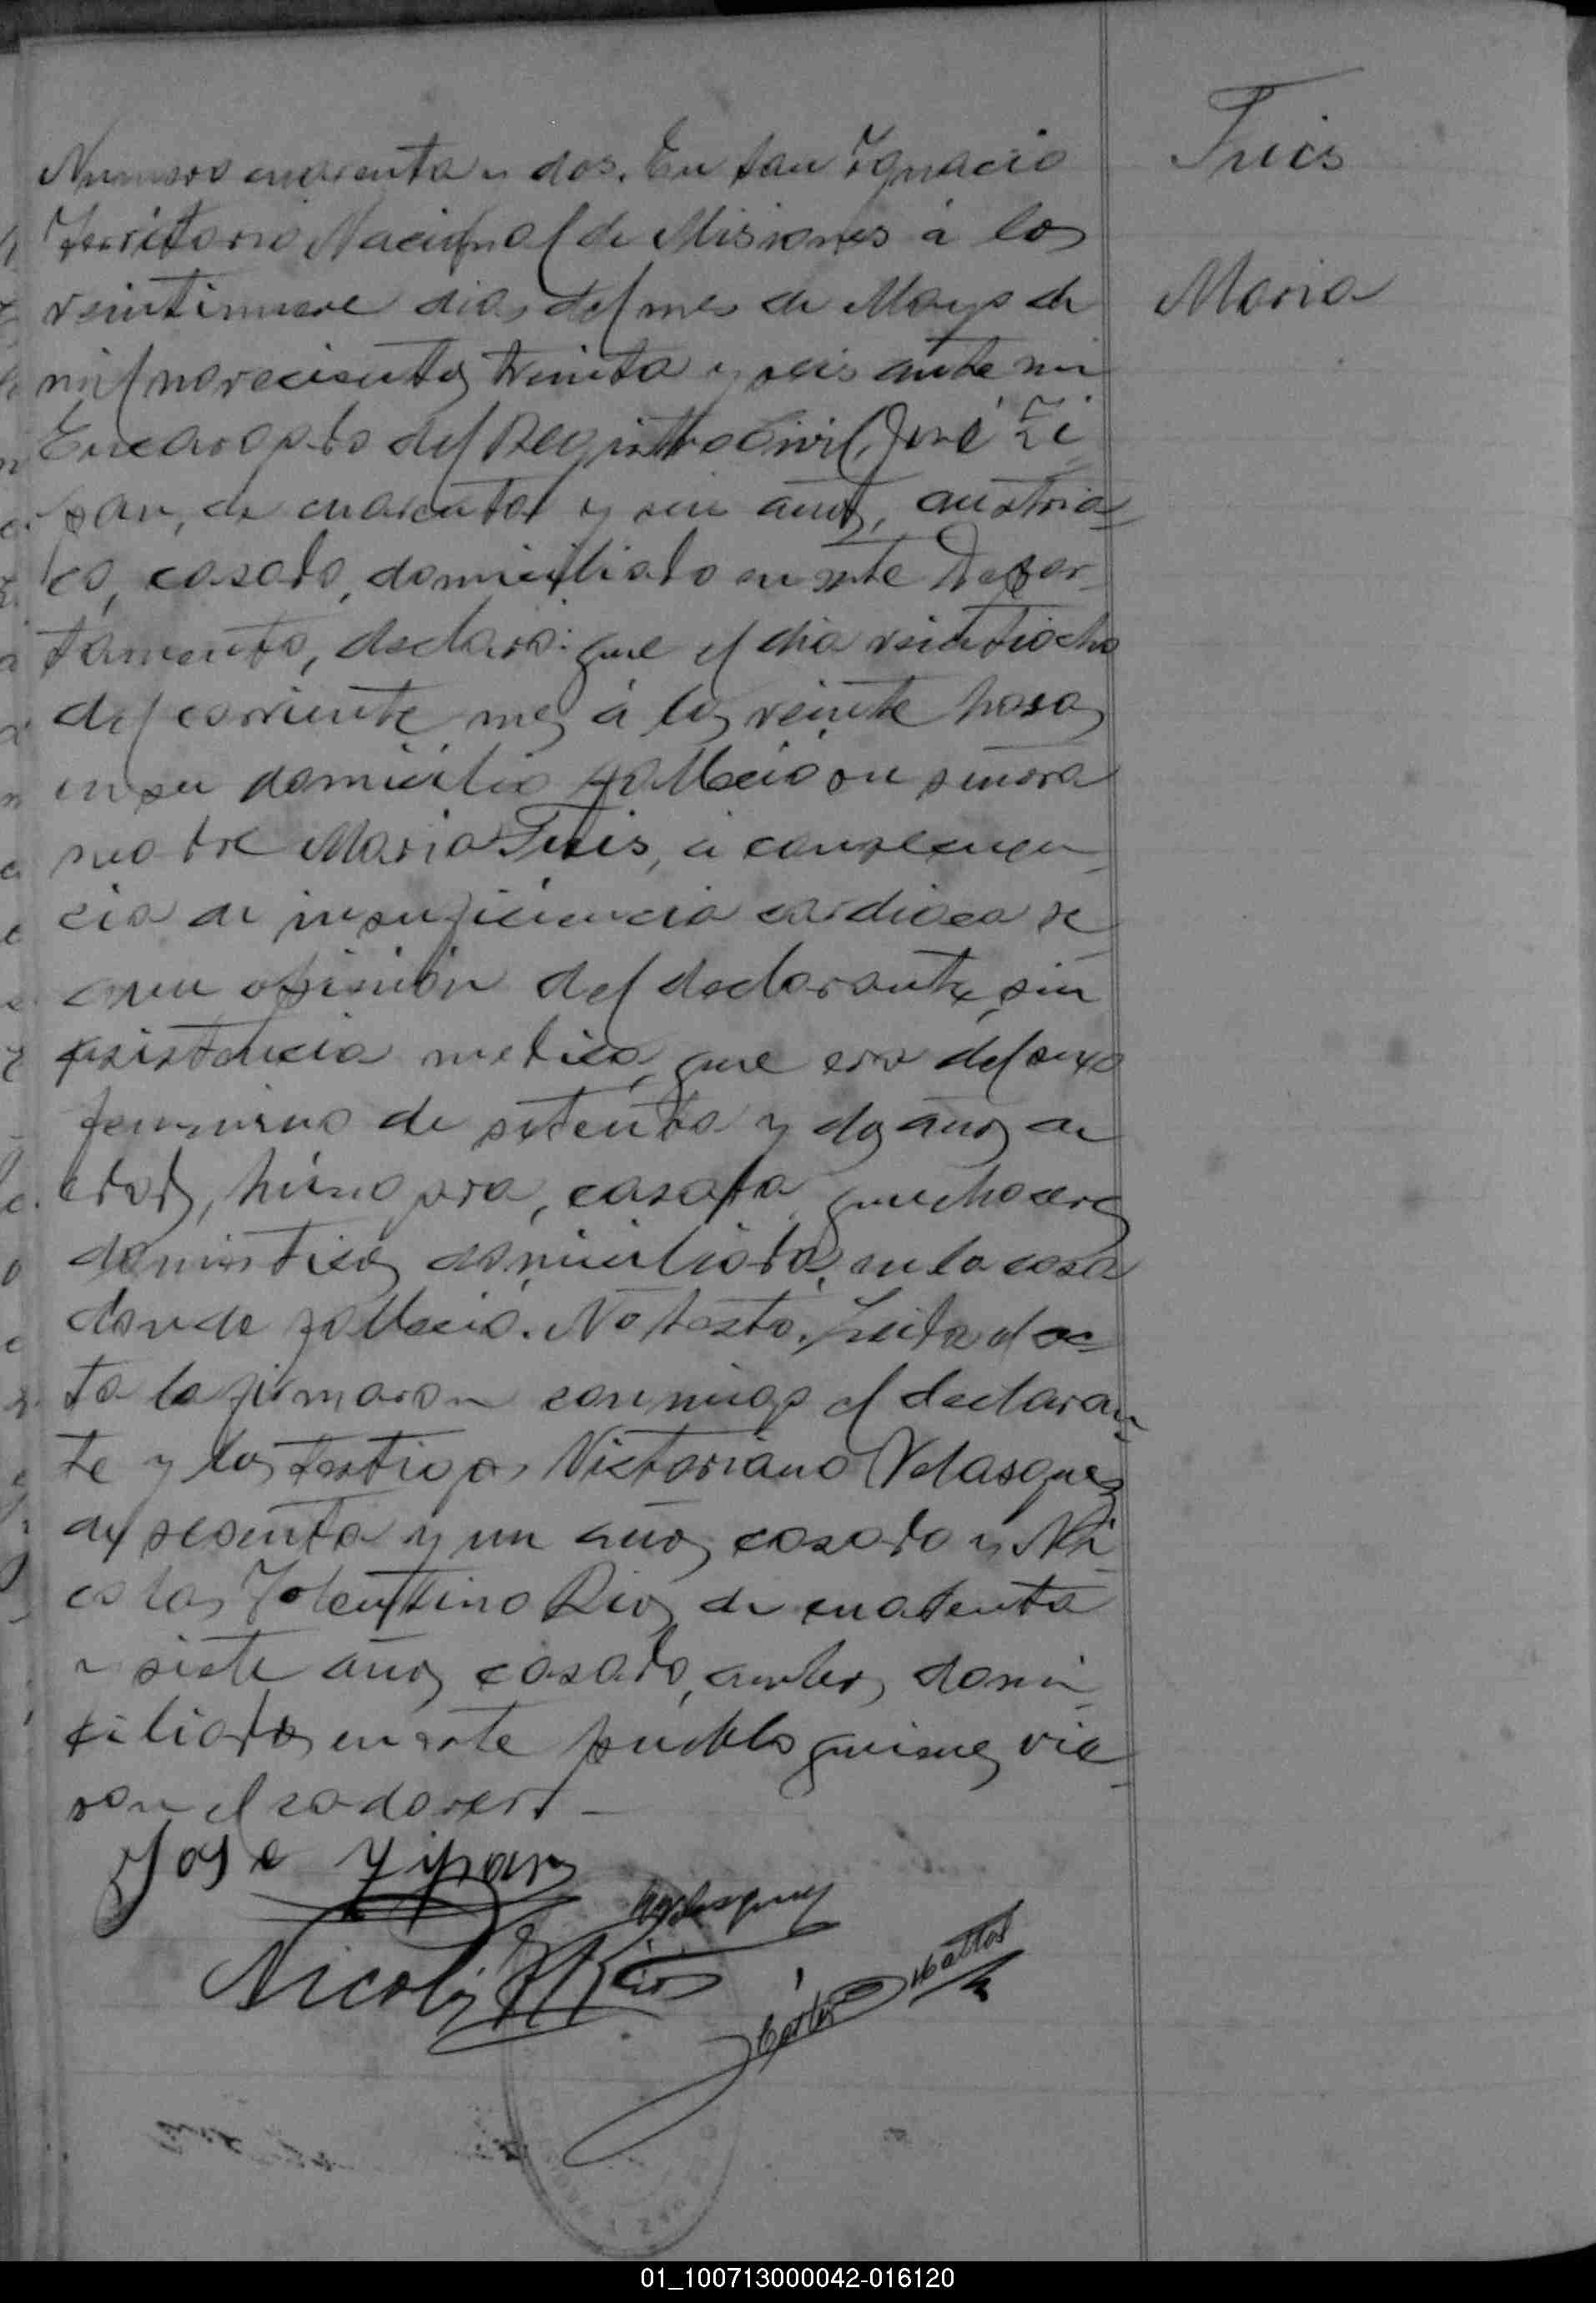 Numero cuarenta y dos. En San Ignacio
Territorio Nacional de Misiones á los
veintinueve dias del mes de Mayo de
mil novecientos treinta y seis ante mi
Encargado del Registro Civil, José Zi
pan, de cuarenta y seis años, austria=
co, casado, domiciliado en este Depar-
tamento, declaró: que el dia veintiocho
del corriente mes á las veinte horas
en su domicilio falleció su señora
madre Maria, á consecuen-
cia de insuficiencia cardiaca se
gun opinión del declarante, sin
asistencia medica, que era del sexo
femenino de setenta y dos años de
edad, casada, quehaceres
domesticos, domiciliada en la casa
donde falleció. No testó. Leida el ac=
ta la firmaron conmigo el declaran-
te y los testigos Victoriano Velasquez
de sesenta y un años, casado y Ni-
colas Tolentino Rios de cuarenta
y siete años, casado, ambos domi-
ciliados en este pueblo quienes vie-
ron el cadaver. -
Jose Zipan
Velasquez
Nicolás T Rios
Carlos Mattos
Maria
01_100713000042-016120